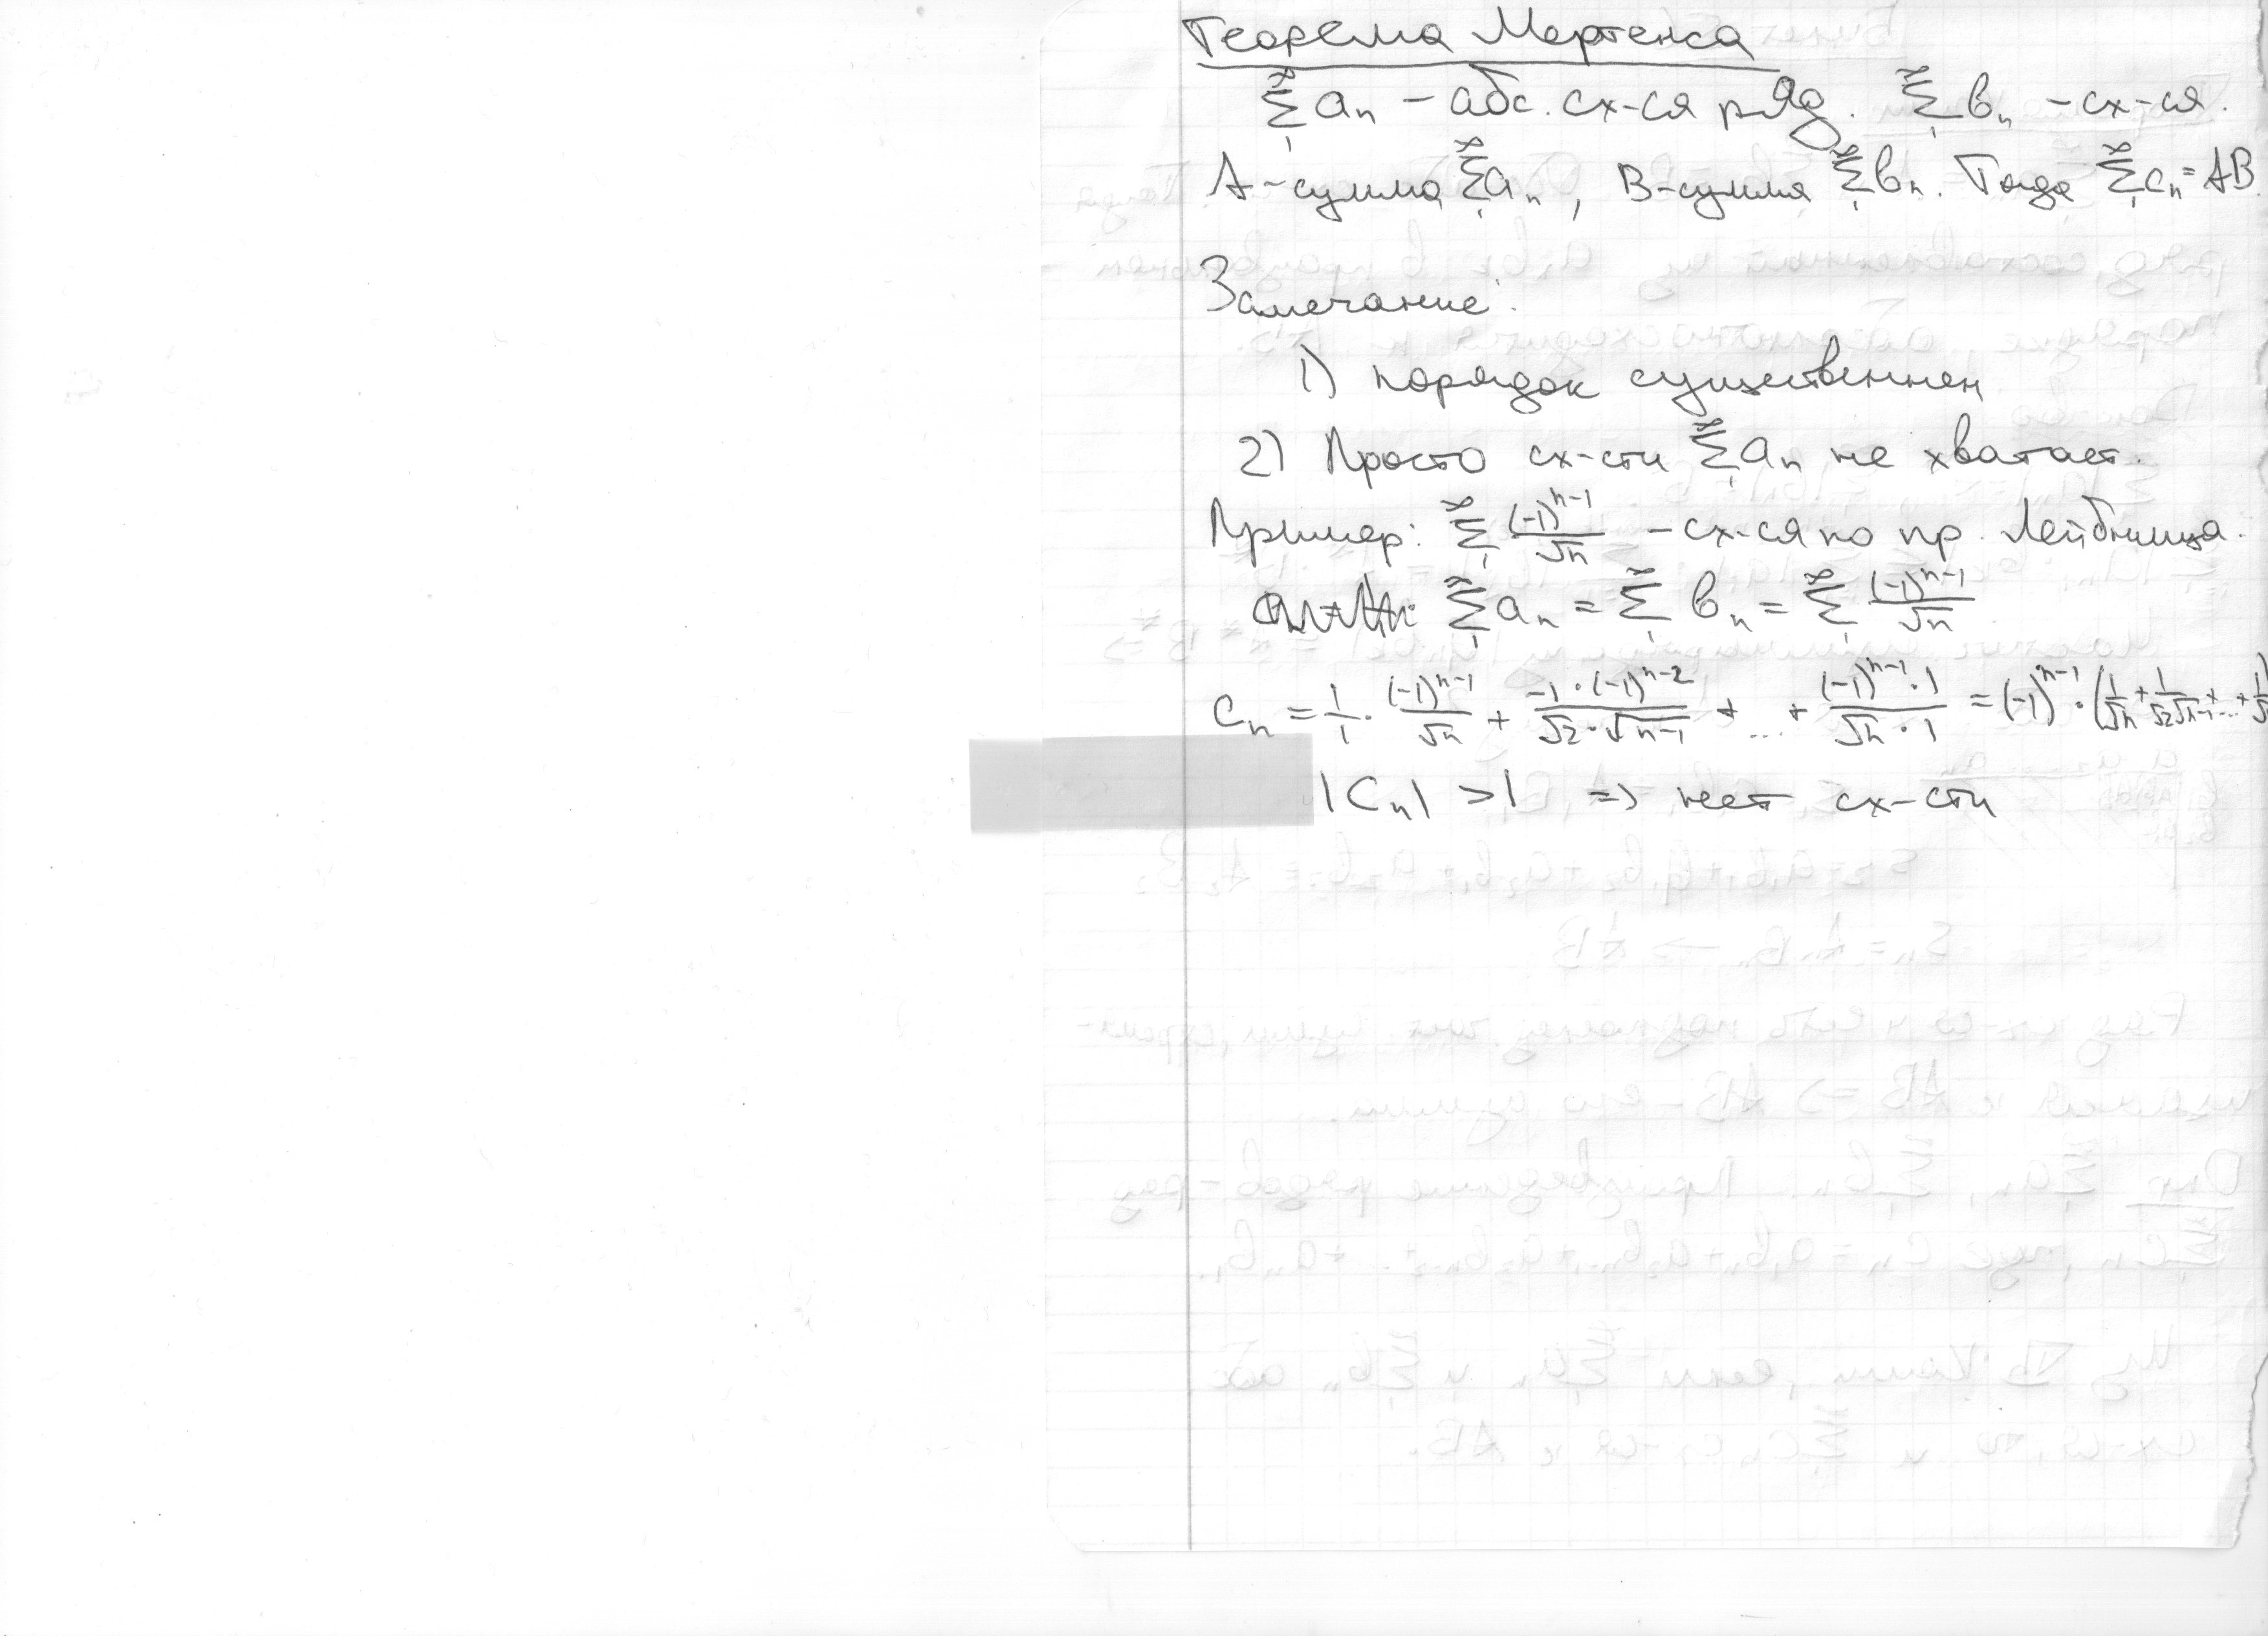 Теорема Мертенса
∞∑1 aₙ – абс. сх-ся ряд. ∞∑1 bₙ – сх-ся.
A – сумма ∞∑1 aₙ, B – сумма ∞∑1 bₙ. Тогда ∞∑1 cₙ = AB.
Замечание:
1) порядок существеннен
2) Просто сх-сти ∞∑1 aₙ не хватает.
Пример: ∞∑1 (-1)ⁿ⁻¹/√n – сх-ся по пр. Лейбница.
∞∑1 aₙ = ∞∑1 bₙ = ∞∑1 (-1)ⁿ⁻¹/√n
Cₙ = 1/1 · (-1)ⁿ⁻¹/√n + -1·(-1)ⁿ⁻²/√2·√n-1 + ... + (-1)ⁿ⁻¹·1/√n·1 = (-1)ⁿ⁻¹·(1/√n + 1/√2√n-1 + ... + 1/√
|Cₙ| > 1 => нет сх-сти